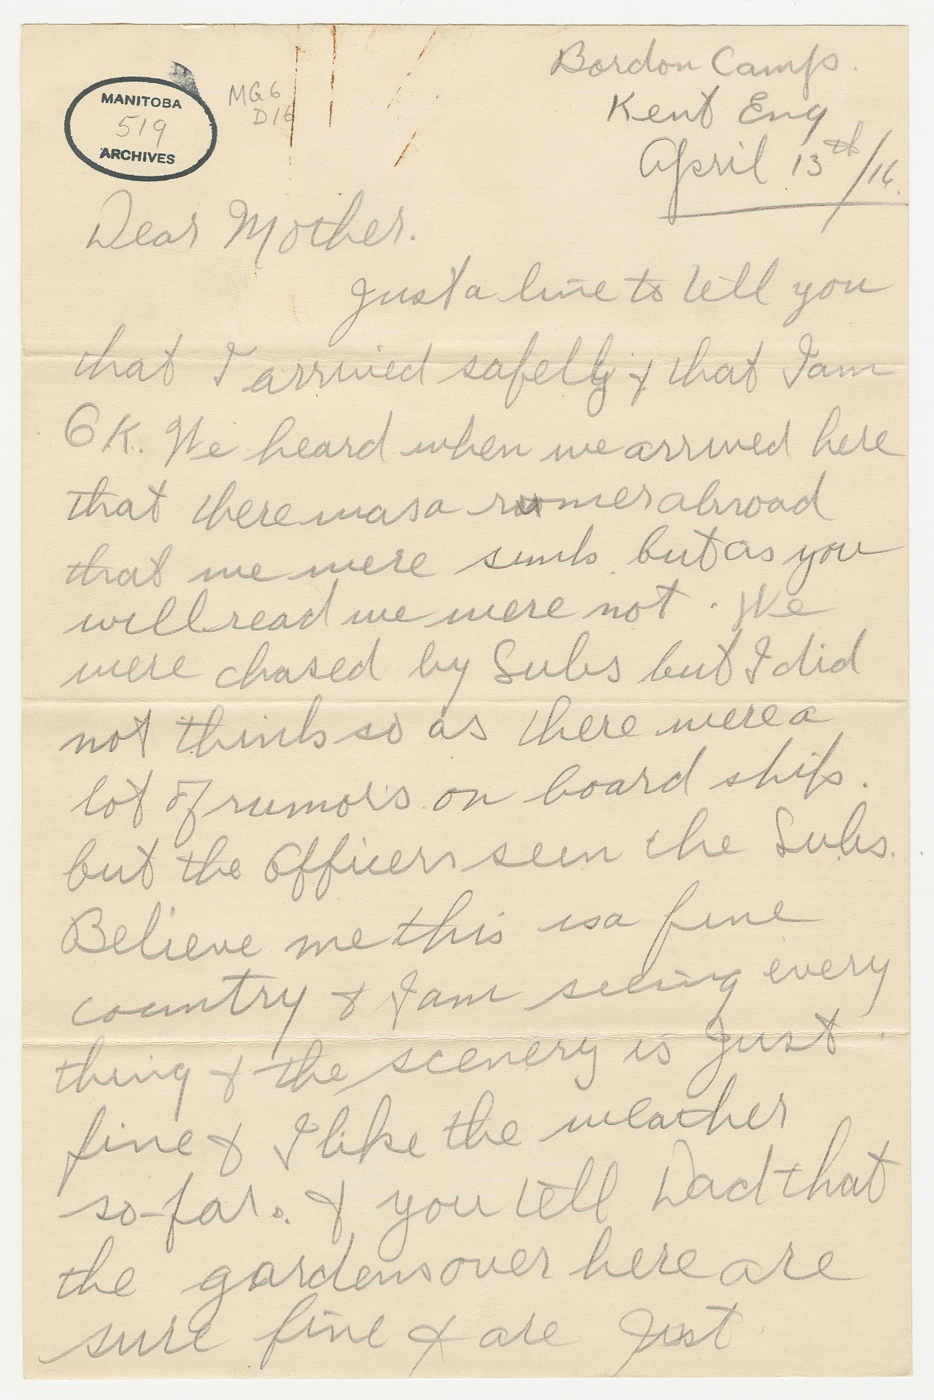 Bordon Camp.
Kent Eng
April 13th/16.
MANITOBA
519
ARCHIVES
MG6
D16
Dear Mother.
Just a line to tell you
that I arrived safelly & that I am
OK. We heard when we arrived here
that there was a rumer abroad
that we were sunk but as you
will read we were not. We
were chased by Subs but I did
not think so as there were a
lot of rumors on board ship.
but the Officers seen the Subs.
Believe me this is a fine
country & I am seeing every
thing & the scenery is Just
fine & I like the weather
so-far. & you tell Dad that
the gardens over here are
sure fine & are Just